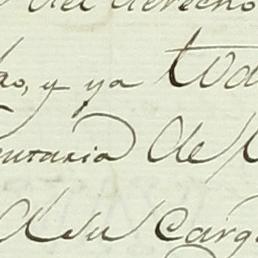 del derecho
y ya tod
entaria de
de su Carg